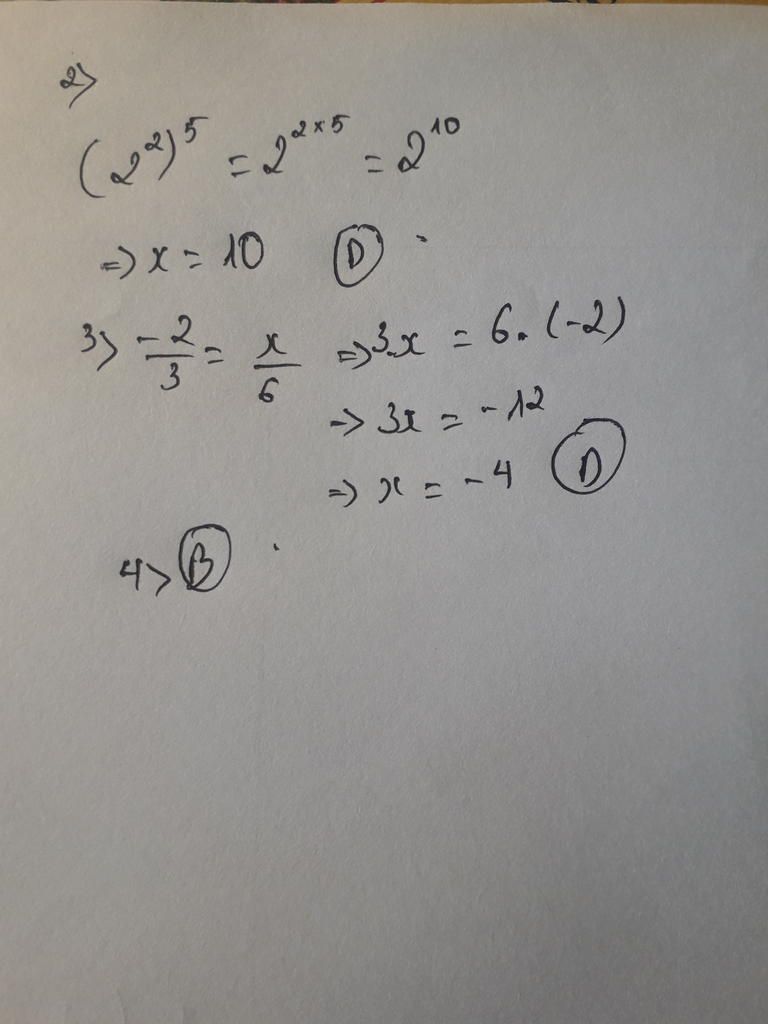 2>
(2²)⁵ = 2²ˣ⁵ = 2¹⁰
=> x = 10 D
3> -2/3 = x/6 => 3.x = 6.(-2)
=> 3x = -12
=> x = -4 D
4> B